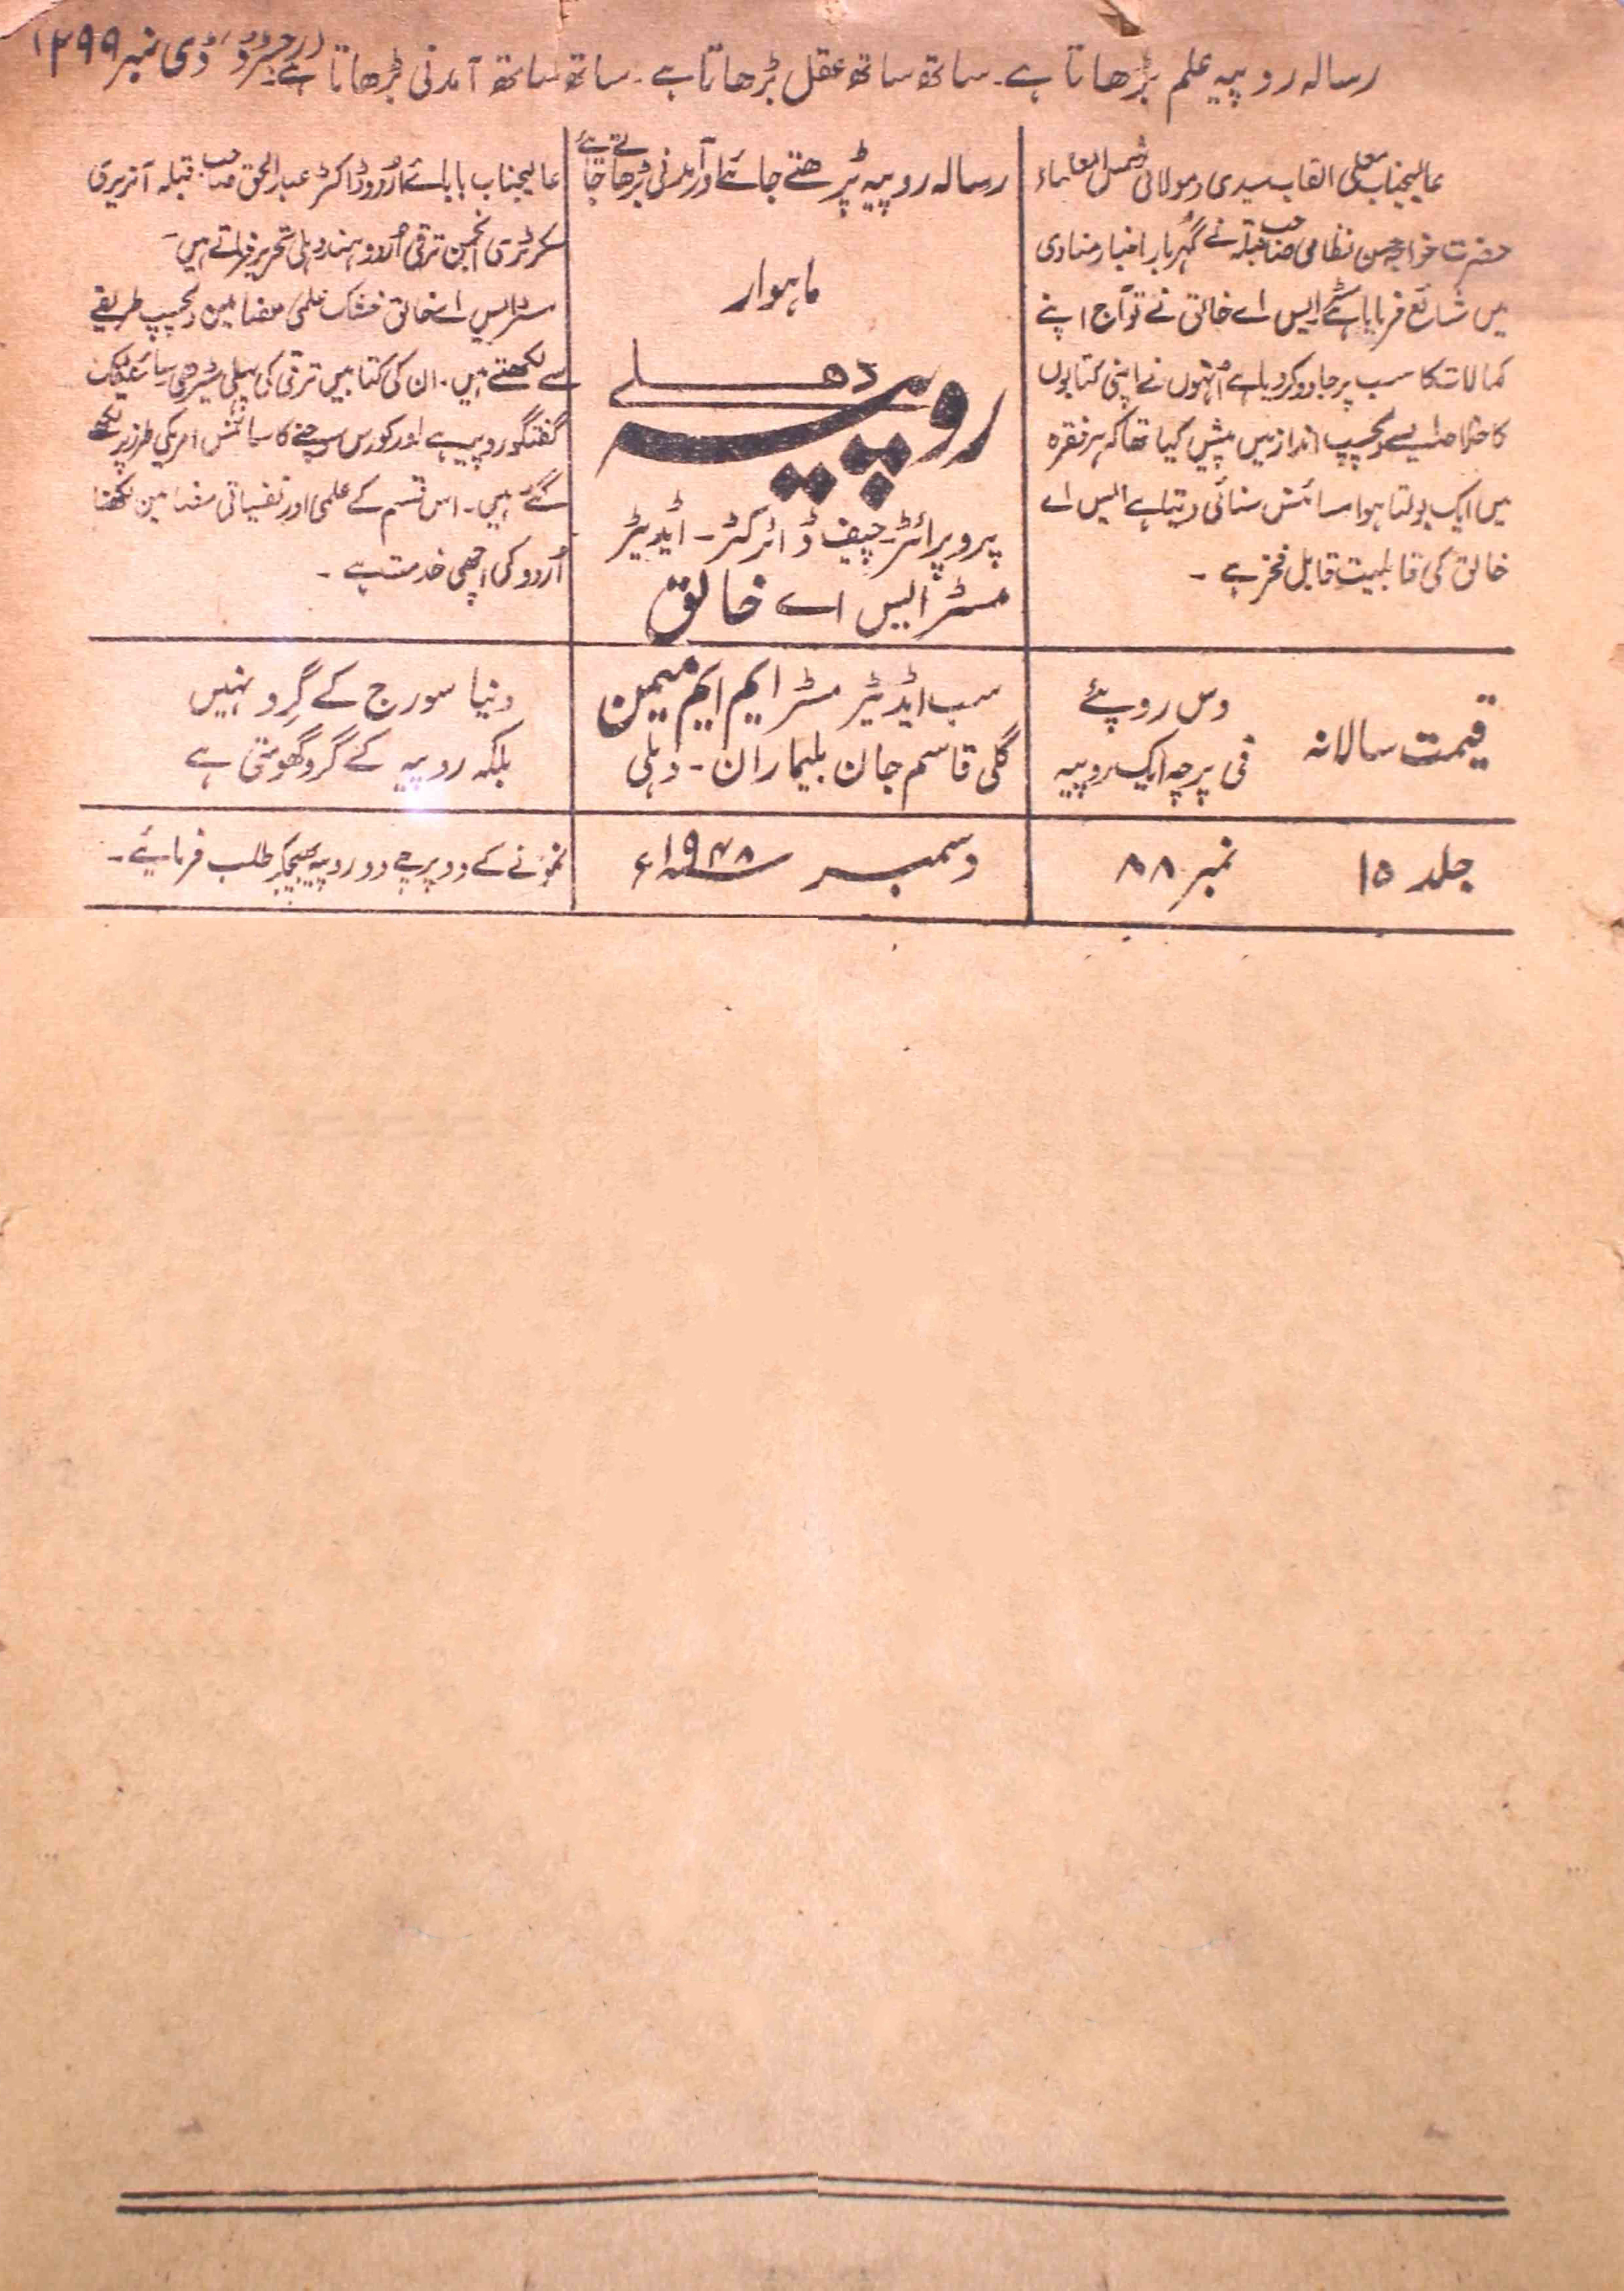 رسالہ روپیہ علم بڑھاتا ہے۔ ساتھ ساتھ عقل بڑھاتا ہے۔ ساتھ ساتھ آمدنی بڑھاتا ہے۔ رجسٹرڈ ڈی نمبر ۱۲۹۹
عالیجناب معلی القاب سیدی ومولائی شمس العلماء
حضرت خواجہ حسن نظامی صاحب قبلہ نے گہربار اخبار منادی
میں شائع فرمایا ہے مسٹر ایس اے خالق نے تو آج اپنے
کمالات کا سب پر جادو کر دیا ہے اُنہوں نے اپنی کتابوں
کا خلاصہ ایسے دلچسپ انداز میں پیش کیا تھا کہ ہر فقرہ
میں ایک بولتا ہوا سائنس سنائی دیتا ہے ایس اے
خالق کی قابلیت قابل فخر ہے۔
رسالہ روپیہ پڑھتے جائے اور آمدنی بڑھاتے جائے
ماہوار
روپیہ
دھلے
پروپرائٹر۔ چیف ڈائرکٹر۔ ایڈیٹر
مسٹر ایس اے خالق
عالیجناب بابائے اُردو ڈاکٹر عبدالحق صاحب قبلہ آنریری
سکرٹری انجمن ترقی اُردو ہند دہلی تحریر فرماتے ہیں۔
مسٹر ایس اے خالق خشک علمی مضامین دلچسپ طریقے
سے لکھتے ہیں۔ ان کی کتابیں ترقی کی پہلی سیڑھی سائنٹیفک
گفتگو روپیہ ہے اور کورس سوچنے کا سائنس امریکی طرز پر لکھے
گئے ہیں۔ اس قسم کے علمی اور نفسیاتی مضامین لکھنا
اُردو کی اچھی خدمت ہے۔
قیمت سالانہ
دس روپئے
فی پرچہ ایک روپیہ
سب ایڈیٹر مسٹر ایم ایم میمن
گلی قاسم جان بلیماران۔ دہلی
دنیا سورج کے گِرد نہیں
بلکہ روپیہ کے گرد گھومتی ہے
جلد ۱۵ نمبر ۸۸
دسمبر ۱۹۴۸ء
نمونے کے دو پرچے دو روپیہ بھیجکر طلب فرمائیے۔